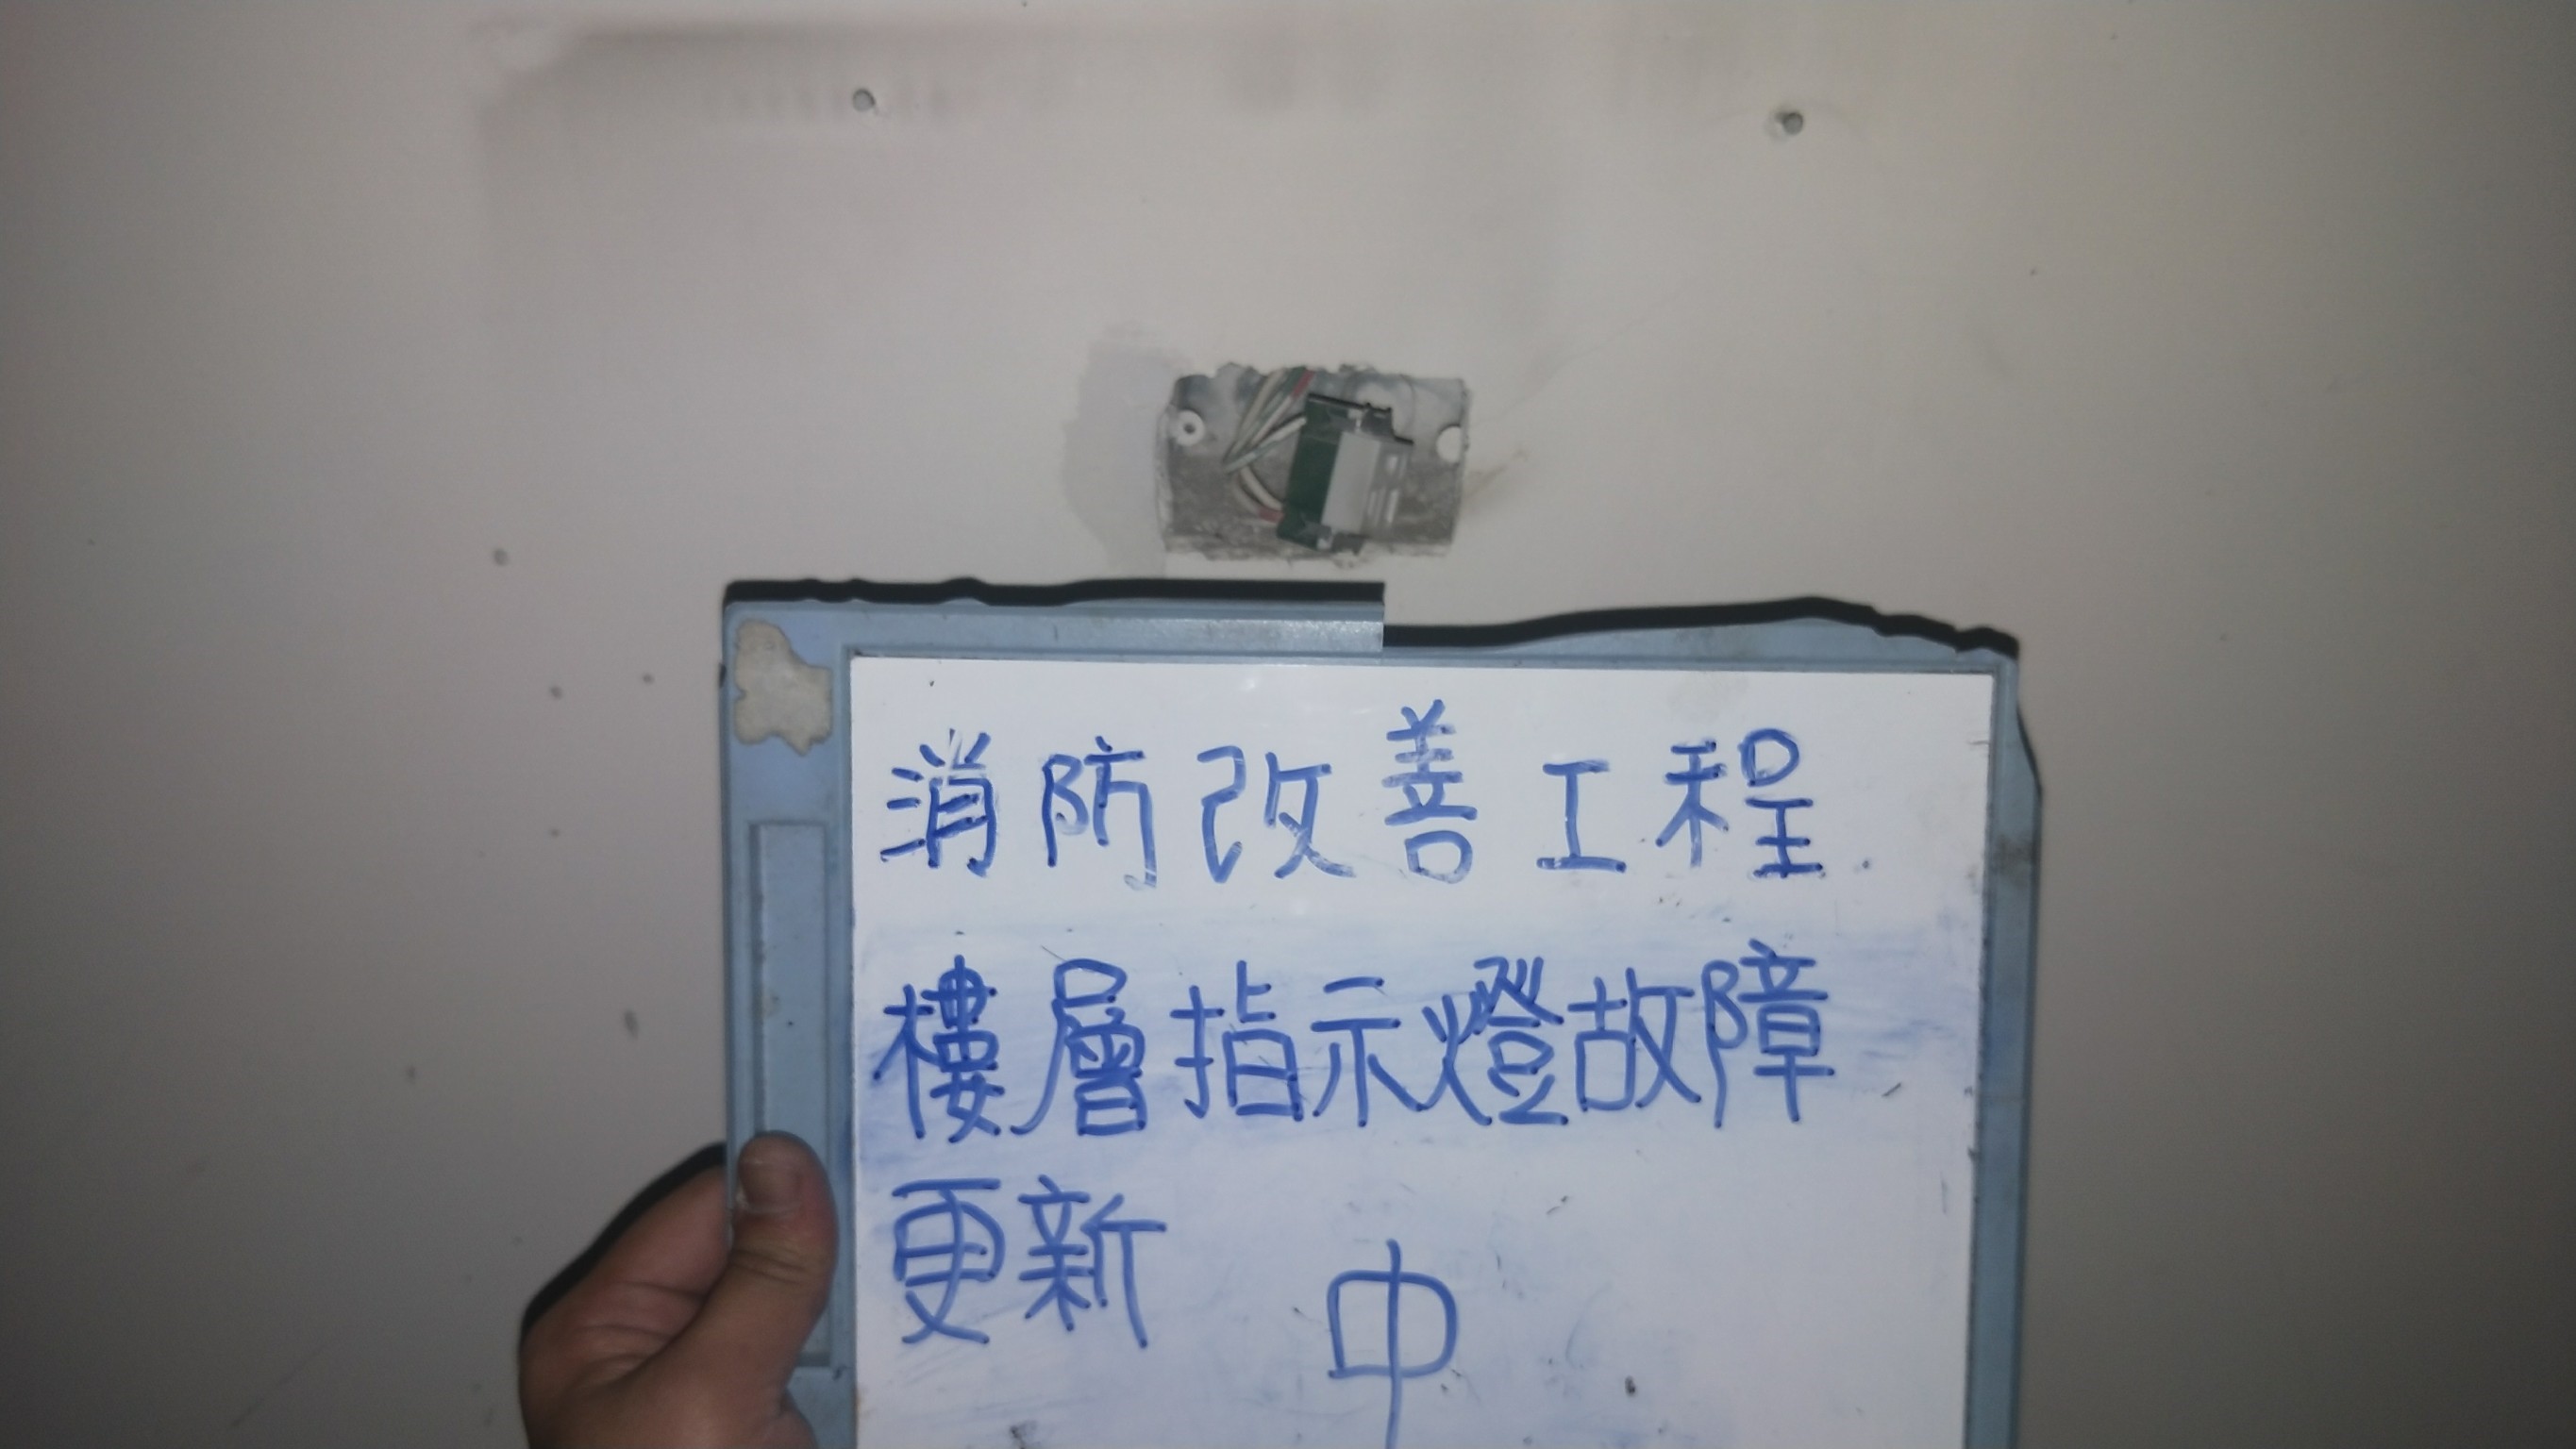 消防改善工程
樓層指示燈故障
更新 中